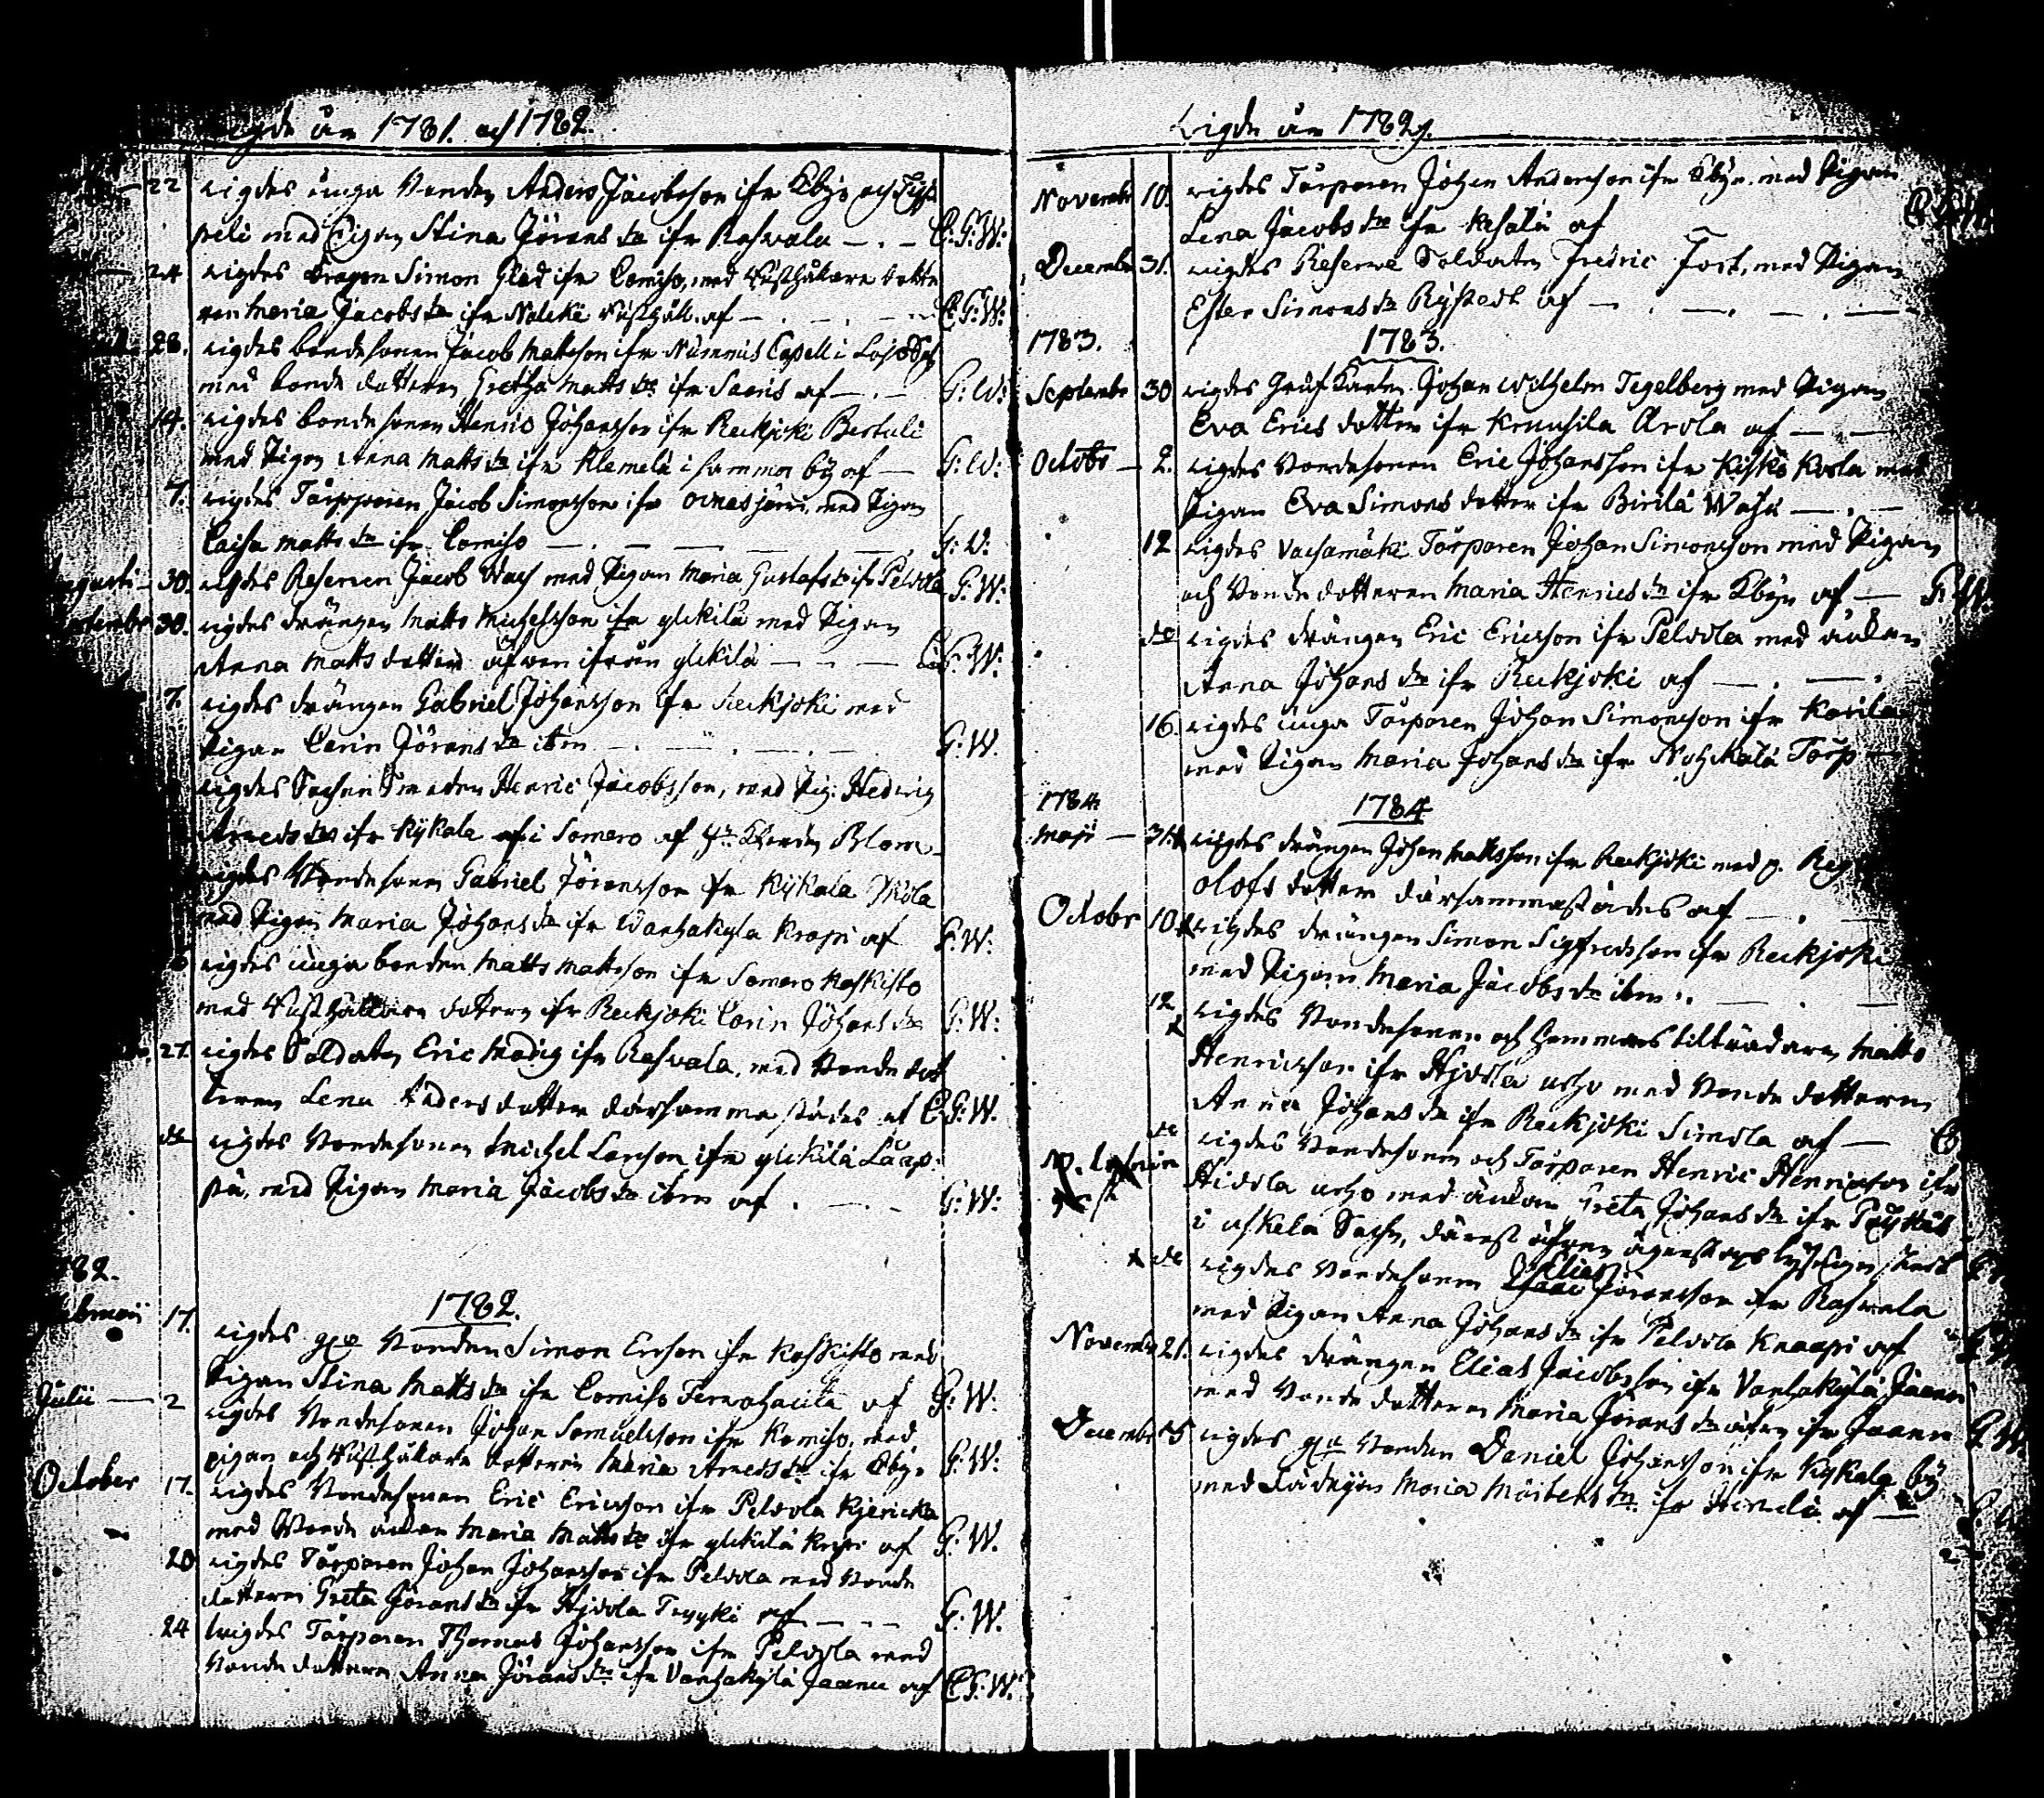 år 1781. och 1782.
22 wigdes unga bonden Anders Jacobsson ifr Kbyn och
peli med Pigan Stina Jörans dr ifr Rahvala — . — C:G:W:
24 wigdes Dragon Simon Glad ifr Comiso, med Rusthållare dotte
ren Maria Jacobs dr ifr Noleki Rusthåll. af — . — . — C:G:W:
28. wigdes bondesonen Jacob Mattsson ifr Nummis Capell i Lojo S
med bonde dotteren Gretha Matts dr ifr Saeris af — . — G:W:
14. wigdes bondesonen Henric Johansson ifr Reckjoki Bertuli
med Pigan Anna Matts dr ifr Klemelä i samma by af — G:W:
7. wigdes Torpparen Jacob Simonsson ifr Oinasjärvi, med Pigan
Caisa Matts dr ifr Comiso — . — — — G:W:
gusti — 30. wigdes Reserven Jacob Wass med Pigan Maria Gustafs dr ifr Peldola G:W:
ptembr 30. wigdes drängen Matts Michelsson ifr ylikilä med Pigan
Anna Matts dotter äfwen ifrån ylikilä — . — — G:W:
7. wigdes drängen Gabriel Johansson ifr Reckjoki med
Pigan Carin Jörans dr ibm — . — . — . — G:W.
wigdes Sochne Smeden Henric Jacobsson, med Pig: Hedwig
Anders dr ifr Kykala i Somero af Blom
wigdes Bondesonen Gabriel Jöransson ifr Kykala
med Pigan Maria Johans dr ifr Wanhakyla Krapi af G:W:
wigdes unga bonden Matts Mattsson ifr Somero Koskisto
med Rusthållare dottern ifr Reckjoki Carin Johans dr G:W:
27. wigdes Soldaten Eric Modig ifr Rahvala, med Bonde dot
teren Lena Anders dotter därsammastädes af C:G:W.
do wigdes Bondesonen Michel Larsson ifr ylikilä
med Pigan Maria Jacobs dr ibm af . — . — G:W:
782.
1782.
bruarii 17. wigdes Bonden Simon Ersson ifr Koskisto med
Pigan Stina Matts dr ifr Comiso af G:W.
Julii — 2 wigdes Bondesonen Johan Samuelsson ifr Komiso, med
Pigan och Rusthållare dotteren Maria Anders dr ifr Kbyn G:W:
October 17. wigdes Bondesonen Eric Ericsson ifr Peldola Kjericka
med Bonde änkan Maria Matts dr ifr ylikilä af G:W.
20 wigdes Torparen Johan Johansson ifr Peldola med Bonde
dotteren Greta Jörans dr ifr Hjdola Tryyki af — . — G:W.
24 wigdes Torparen Thomas Johansson ifr Peldola med
Bonde dotteren Anna Jörans dr ifr Vanhakylä Jaanu af C:G:W:
Wigde år 1782
Novembr 10. wigdes Torparen Johan Andersson ifr Kbyn. med Pigan
Lena Jacobs dr ifr af
Decembr 31. wigdes Reserve Soldaten Fredric Fort, med Pigan
Ester Simons dr Rystedt af — . — . — . —
1783. 1783.
Septembr 30 wigdes Johan Wilhelm Tegelberg med Pigan
Eva Erics dotter ifr Kruusila Arola af — . —
Octobr — 2. wigdes Bondesonen Eric Johansson ifr Kiskå Korla med
Pigan Eva Simons dotter ifr Birilä — . —
12 wigdes Torparen Johan Simonsson med Pigan
och Bonde dotteren Maria Henrics dr ifr Kbyn af — G:W.
do wigdes drängen Eric Ericsson ifr Peldola med änkan
Anna Johans dr ifr Reckjoki af — . — .
16. wigdes unga Torparen Johan Simonsson ifr Korila
med Pigan Maria Johans dr ifr Torp —
1784. 1784
Maji — 31 wigdes drängen Johan Mattsson ifr Reckjoki med p.
Olofs dotter därsammastädes af — . —
Octobr 10 wigdes drängen Simon Sigfredsson ifr Reckjoki
med Pigan Maria Jacobs dr ibm . — . —
12 wigdes Bondesonen och hemmans tillträdaren Matts
Henricsson ifr Hjdola med Bonde dotteren
Anna Johans dr ifr Reckjoki Simola af —
do wigdes Bondesonen och Torparen Henric Henricsson ifr
Hidola med änkan Greta Johans dr ifr
i uskela Sochn,
do wigdes Bondesonen Elias Jöransson ifr Rahvala
med Pigan Anna Johans dr ifr Peldola Knaapi af
Novembr 21. wigdes drängen Elias Jacobsson ifr Vanhakylä Jaanu
med Bonde dotteren Maria Jörans dr äfven ifr Jaanu G:W.
Decembr 5 wigdes Bonden Daniel Johansson ifr Kykala by
med Maria Mårtens dr ifr af —